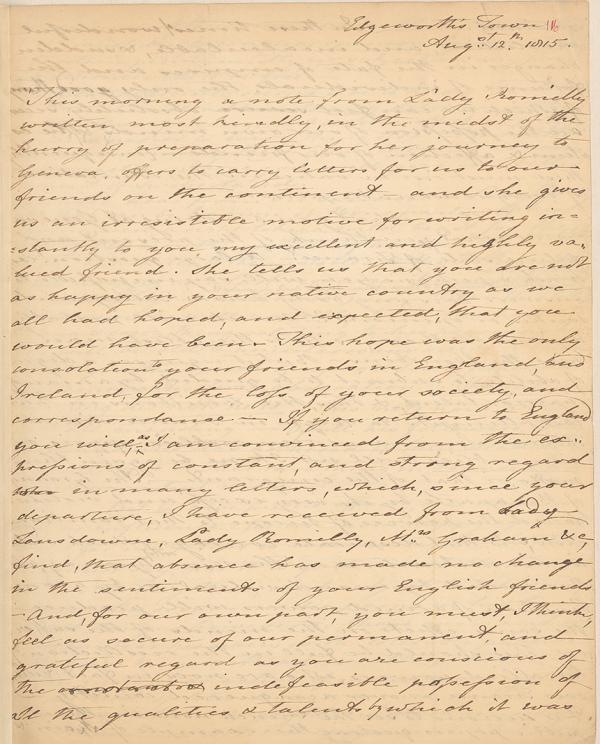 Edgeworth's Town 116
Augst. 12th. 1815.
This morning a note from Lady Romilly
written most kindly, in the midst of the
hurry of preparation for her journey to
Geneva, offers to carry letters for us to our
friends on the continent — and she gives
us an irresistible motive for writing in=
=stantly to you my excellent and highly va-
lued friend. She tells us that you are not
as happy in your native country as we
all had hoped, and expected, that you
would have been. This hope was the only
consolation to your friends in England, and
Ireland, for the loss of your society, and
correspondance — If you return to England
you will, as I am convinced from the ex-
pressions of constant, and strong regard
in many letters, which, since your
departure, I have received from Lady
Lansdowne, Lady Romilly, Mrs. Graham &c,
find, that absence has made no change
in the sentiments of your English friends
- And, for our own part, you must, I think,
feel as secure of our permanent, and
grateful regard as you are conscious of
the indefeasible possession of
all the qualities & talents by which it was